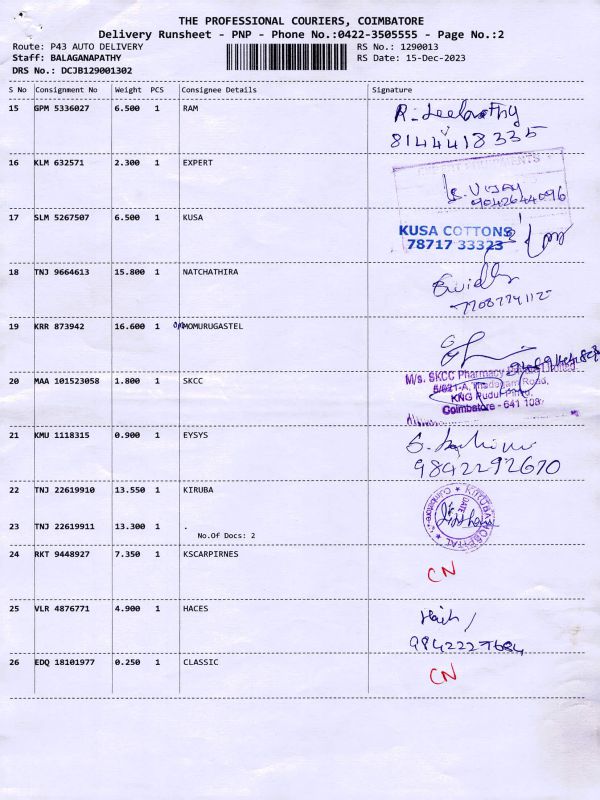 THE PROFESSIONAL COURIERS, COIMBATORE
Delivery Runsheet - PNP - Phone No.:0422-3505555 - Page No.:2
Route: P43 AUTO DELIVERY RS No.: 1290013
Staff: BALAGANAPATHY RS Date: 15-Dec-2023
DRS No.: DCJB129001302
S No Consignment No Weight PCS Consignee Details Signature
15 GPM 5336027 6.500 1 RAM
8144418335
16 KLM 632571 2.300 1 EXPERT
VIJAY
9042644096
17 SLM 5267507 6.500 1 KUSA
KUSA COTTONS
78717 33323
18 TNJ 9664613 15.800 1 NATCHATHIRA
19 KRR 873942 16.600 1 OMOMURUGASTEL
20 MAA 101523058 1.800 1 SKCC
M/s. SKCC Pharmacy Limited
5/621-A, Thadagam Road,
KNG Pudur
Coimbatore - 641 108
21 KMU 1118315 0.900 1 EYSYS
9842292670
22 TNJ 22619910 13.550 1 KIRUBA
KIRUBA HOSPITAL
23 TNJ 22619911 13.300 1 .
No.Of Docs: 2
24 RKT 9448927 7.350 1 KSCARPIRNES
CN
25 VLR 4876771 4.900 1 HACES
26 EDQ 18101977 0.250 1 CLASSIC
CN